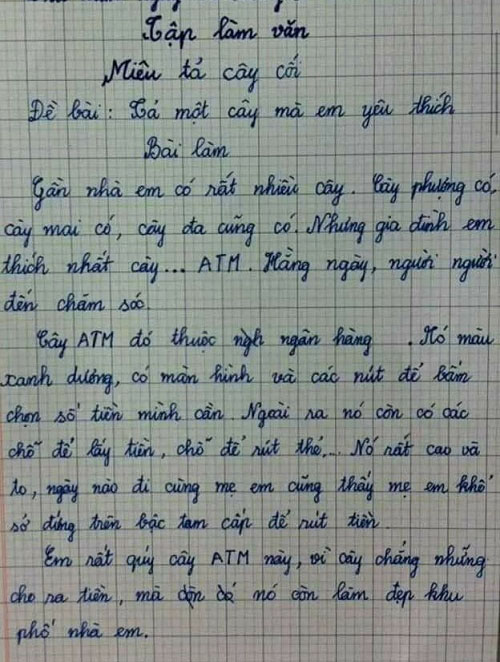 Tập làm văn
Miêu tả cây cối
Đề bài : Tả một cây mà em yêu thích
Bài làm
Gần nhà em có rất nhiều cây. Cây phượng có,
cây mai có, cây đa cũng có. Nhưng gia đình em
thích nhất cây... ATM. Hằng ngày, người người
đến chăm sóc.
Cây ATM đó thuộc ngh ngân hàng . Nó màu
xanh dương, có màn hình và các nút để bấm
chọn số tiền mình cần. Ngoài ra nó còn có các
chỗ để lấy tiền, chỗ để rút thẻ... Nó rất cao và
to, ngày nào đi cùng mẹ em cũng thấy mẹ em khổ
sở đứng trên bậc tam cấp để rút tiền.
Em rất quý cây ATM này, vì cây chẳng những
cho ra tiền, mà nó còn làm đẹp khu
phố nhà em.